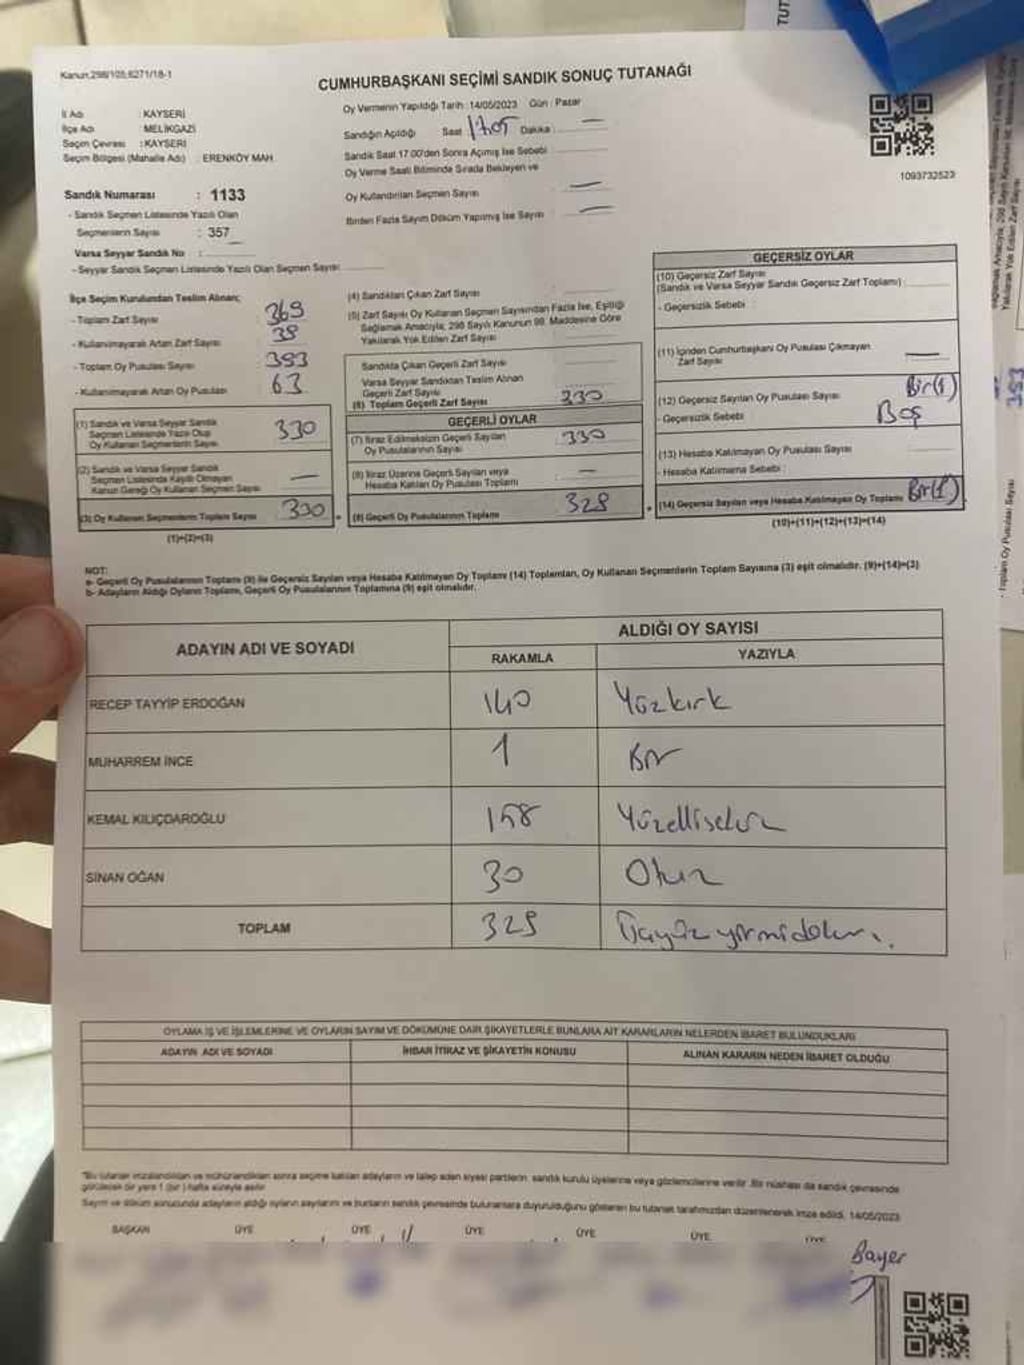 Kanun,298/105;6271/18-1
CUMHURBAŞKANI SEÇİMİ SANDIK SONUÇ TUTANAĞI
İl Adı : KAYSERİ
İlçe Adı : MELİKGAZİ
Seçim Çevresi : KAYSERİ
Seçim Bölgesi (Mahalle Adı) : ERENKÖY MAH.
Oy Vermenin Yapıldığı Tarih : 14/05/2023 Gün : Pazar
Sandığın Açıldığı Saat 17.05 Dakika : —
Sandık Saat 17.00'den Sonra Açılmış İse Sebebi :
Oy Verme Saati Bitiminde Sırada Bekleyen ve
Oy Kullandırılan Seçmen Sayısı : —
Birden Fazla Sayım Döküm Yapılmış İse Sayısı : —
1093732523
Sandık Numarası : 1133
- Sandık Seçmen Listesinde Yazılı Olan
Seçmenlerin Sayısı : 357
Varsa Seyyar Sandık No :
- Seyyar Sandık Seçmen Listesinde Yazılı Olan Seçmen Sayısı :
İlçe Seçim Kurulundan Teslim Alınan;
- Toplam Zarf Sayısı : 369
- Kullanılmayarak Artan Zarf Sayısı : 39
- Toplam Oy Pusulası Sayısı : 393
- Kullanılmayarak Artan Oy Pusulası : 63
(1) Sandık ve Varsa Seyyar Sandık
Seçmen Listesinde Yazılı Olup
Oy Kullanan Seçmenlerin Sayısı 330
(2) Sandık ve Varsa Seyyar Sandık
Seçmen Listesinde Kayıtlı Olmayan
Kanun Gereği Oy Kullanan Seçmen Sayısı —
(3) Oy Kullanan Seçmenlerin Toplam Sayısı 330
(1)+(2)=(3)
(4) Sandıktan Çıkan Zarf Sayısı :
(5) Zarf Sayısı Oy Kullanan Seçmen Sayısından Fazla İse, Eşitliği
Sağlamak Amacıyla; 298 Sayılı Kanunun 98. Maddesine Göre
Yakılarak Yok Edilen Zarf Sayısı :
Sandıkta Çıkan Geçerli Zarf Sayısı :
Varsa Seyyar Sandıktan Teslim Alınan
Geçerli Zarf Sayısı :
(6) Toplam Geçerli Zarf Sayısı : 330
GEÇERLİ OYLAR
(7) İtiraz Edilmeksizin Geçerli Sayılan
Oy Pusulalarının Sayısı : 330
(8) İtiraz Üzerine Geçerli Sayılan veya
Hesaba Katılan Oy Pusulası Toplamı : —
(9) Geçerli Oy Pusulalarının Toplamı : 329
GEÇERSİZ OYLAR
(10) Geçersiz Zarf Sayısı
(Sandık ve Varsa Seyyar Sandık Geçersiz Zarf Toplamı) :
- Geçersizlik Sebebi :
(11) İçinden Cumhurbaşkanı Oy Pusulası Çıkmayan
Zarf Sayısı : —
(12) Geçersiz Sayılan Oy Pusulası Sayısı : Bir(1)
- Geçersizlik Sebebi : Boş
(13) Hesaba Katılmayan Oy Pusulası Sayısı :
- Hesaba Katılmama Sebebi :
(14) Geçersiz Sayılan veya Hesaba Katılmayan Oy Toplamı : Bir(1)
(10)+(11)+(12)+(13)=(14)
NOT:
a- Geçerli Oy Pusulalarının Toplamı (9) ile Geçersiz Sayılan veya Hesaba Katılmayan Oy Toplamı (14) Toplamları, Oy Kullanan Seçmenlerin Toplam Sayısına (3) eşit olmalıdır. (9)+(14)=(3)
b- Adayların Aldığı Oyların Toplamı, Geçerli Oy Pusulalarının Toplamına (9) eşit olmalıdır.
ADAYIN ADI VE SOYADI ALDIĞI OY SAYISI
RAKAMLA YAZIYLA
RECEP TAYYİP ERDOĞAN 140 Yüzkırk
MUHARREM İNCE 1 Bir
KEMAL KILIÇDAROĞLU 158 Yüzellisekiz
SİNAN OĞAN 30 Otuz
TOPLAM 329 Üçyüz yirmidokuz
OYLAMA İŞ VE İŞLEMLERİNE VE OYLARIN SAYIM VE DÖKÜMÜNE DAİR ŞİKAYETLERLE BUNLARA AİT KARARLARIN NELERDEN İBARET BULUNDUKLARI
ADAYIN ADI VE SOYADI İHBAR İTİRAZ VE ŞİKAYETİN KONUSU ALINAN KARARIN NEDEN İBARET OLDUĞU
*Bu tutanak imzalandıktan ve mühürlendikten sonra seçime katılan adayların ve talep eden siyasi partilerin, sandık kurulu üyelerine veya gözlemcilerine verilir. Bir nüshası da sandık çevresinde
görülecek bir yere 1 (bir) hafta süreyle asılır.
Sayım ve döküm sonucunda adayların aldığı oyların sayılarını ve bunların sandık çevresinde bulunanlara duyurulduğunu gösteren bu tutanak tarafımızdan düzenlenerek imza edildi. 14/05/2023
BAŞKAN ÜYE ÜYE ÜYE ÜYE ÜYE ÜYE
Bayer